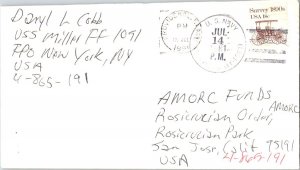 Daryl L Cobb
USS Miller FF 1091
FPO New York, NY
USA
4-865-191
U.S. NAVY
JUL
14
P.M.
PM
Surrey 1890s
USA 18c
AMORC Funds
AMORC
Rosicrucian Order,
Rosicrucian Park,
San Jose, Calif 95191
USA
4-865-191